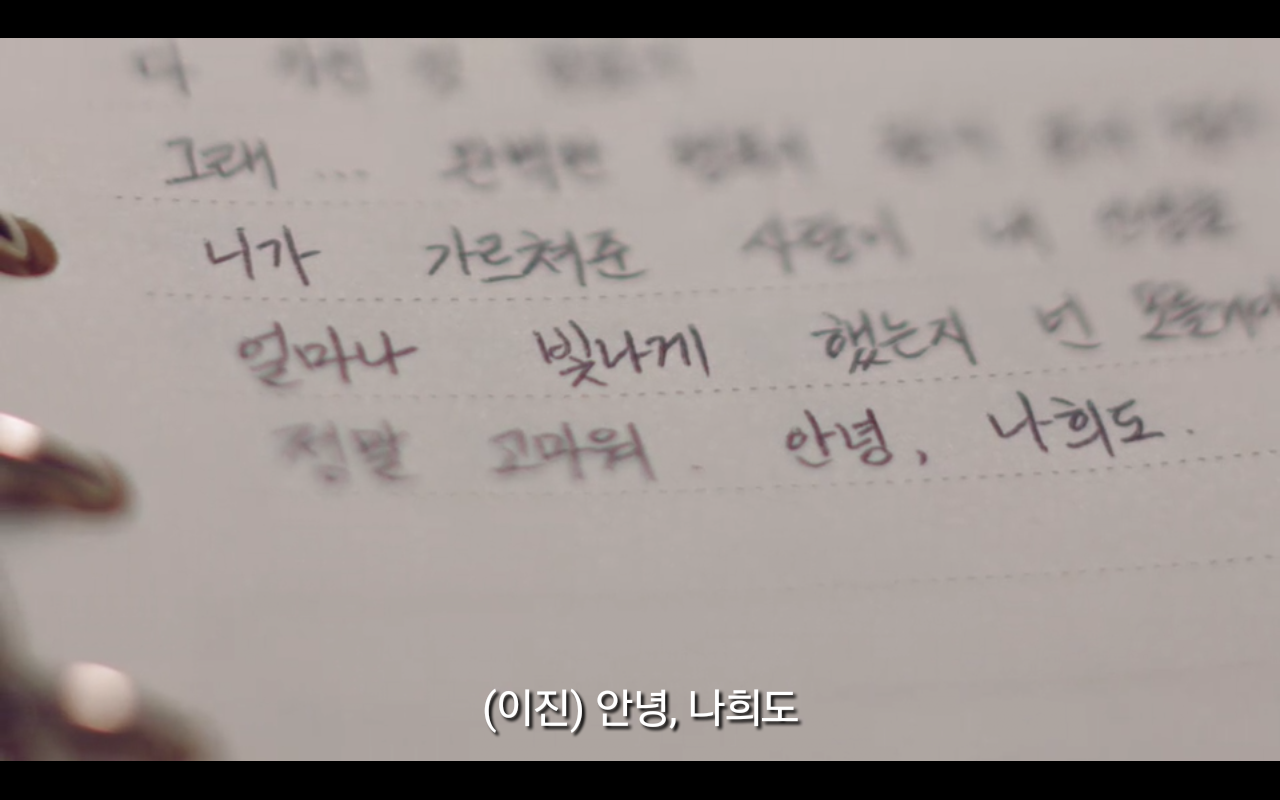 그래 ... 완벽한 행복이
니가 가르쳐준 사랑이 내 인생을
얼마나 빛나게 했는지 넌 모를거야
정말 고마워. 안녕, 나희도.
(이진) 안녕, 나희도